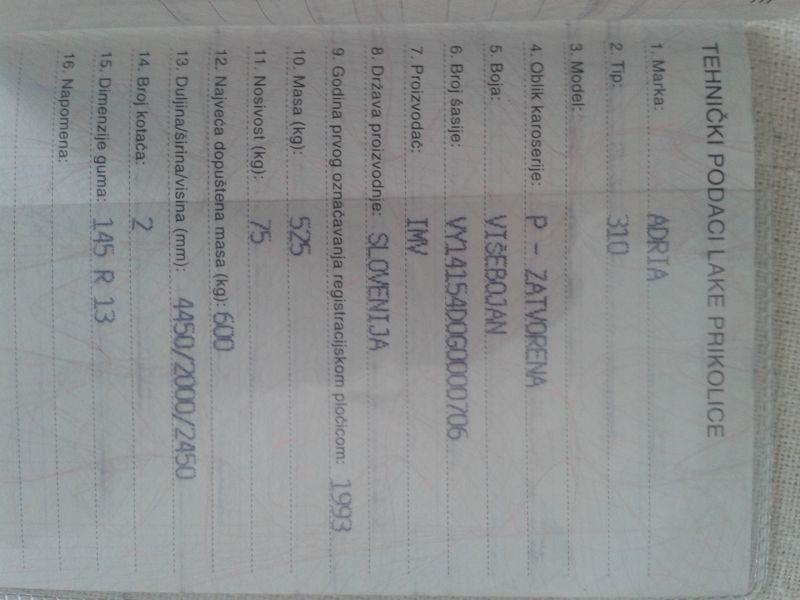 TEHNIČKI PODACI LAKE PRIKOLICE
1. Marka: ADRIA
2. Tip: 310
3. Model:
4. Oblik karoserije: P - ZATVORENA
5. Boja: VIŠEBOJAN
6. Broj šasije: VY14154DOG0000706
7. Proizvođač: IMV
8. Država proizvodnje: SLOVENIJA
9. Godina prvog označavanja registracijskom pločicom: 1993
10. Masa (kg): 525
11. Nosivost (kg): 75
12. Najveća dopuštena masa (kg): 600
13. Duljina/širina/visina (mm): 4450/2000/2450
14. Broj kotača: 2
15. Dimenzije guma: 145 R 13
16. Napomena: